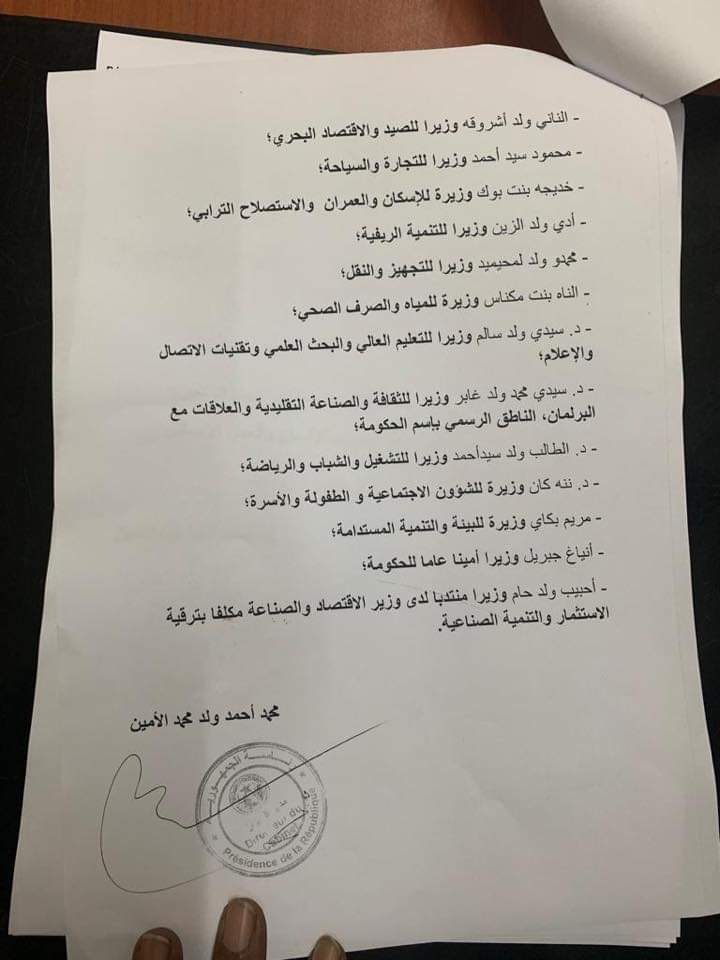 - الناني ولد أشروقه وزيرا للصيد والاقتصاد البحري؛
- محمود سيد أحمد وزيرا للتجارة والسياحة؛
- خديجه بنت بوك وزيرة للإسكان والعمران والاستصلاح الترابي؛
- أدي ولد الزين وزيرا للتنمية الريفية؛
- محمدو ولد لمحيميد وزيرا للتجهيز والنقل؛
- الناه بنت مكناس وزيرة للمياه والصرف الصحي؛
- د. سيدي ولد سالم وزيرا للتعليم العالي والبحث العلمي وتقنيات الاتصال
والإعلام؛
- د. سيدي محمد ولد غابر وزيرا للثقافة والصناعة التقليدية والعلاقات مع
البرلمان، الناطق الرسمي بإسم الحكومة؛
- د. الطالب ولد سيدأحمد وزيرا للتشغيل والشباب والرياضة؛
- د. ننه كان وزيرة للشؤون الاجتماعية و الطفولة والأسرة؛
- مريم بكاي وزيرة للبيئة والتنمية المستدامة؛
- أنياغ جبريل وزيرا أمينا عاما للحكومة؛
- أحبيب ولد حام وزيرا منتدبا لدى وزير الاقتصاد والصناعة مكلفا بترقية
الاستثمار والتنمية الصناعية.
محمد أحمد ولد محمد الأمين
رئاسة الجمهورية
Directeur du
Cabinet
Présidence de la République